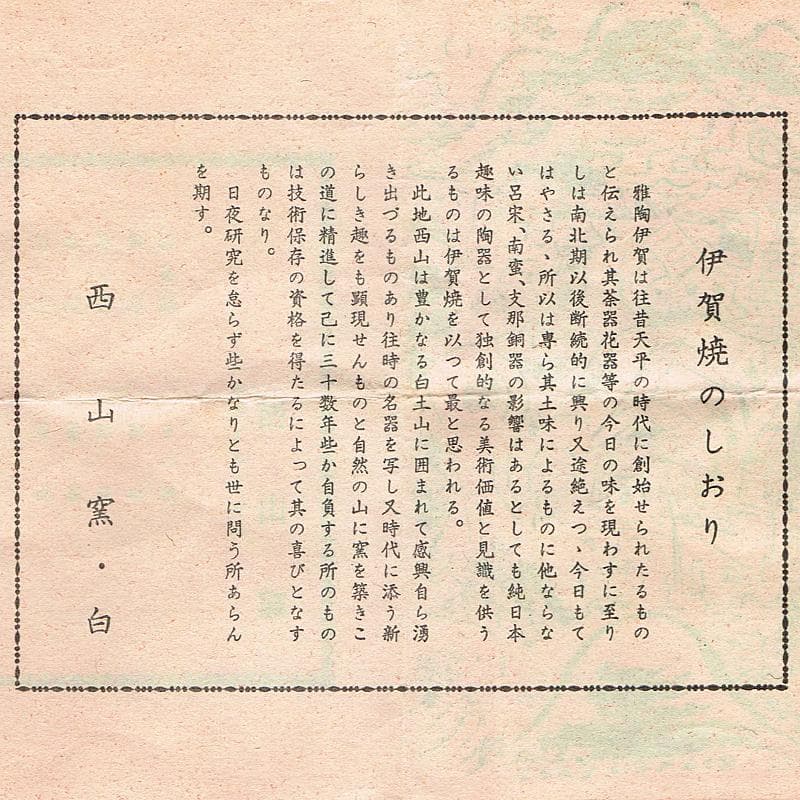 伊賀焼のしおり
雅陶伊賀は往昔天平の時代に創始せられたるもの
と伝えられ其茶器花器等の今日の味を現わすに至り
しは南北期以後断続的に興り又途絶えつゝ今日もて
はやさるゝ所以は専ら其土味によるものに他ならな
い呂宋、南蛮、支那銅器の影響はあるとしても純日本
趣味の陶器として独創的なる美術価値と見識を供う
るものは伊賀焼を以つて最と思われる。
此地西山は豊かなる白土山に囲まれて感興自ら湧
き出づるものあり往時の名器を写し又時代に添う新
らしき趣をも顕現せんものと自然の山に窯を築きこ
の道に精進して己に三十数年些か自負する所のもの
は技術保存の資格を得たるによって其の喜びとなす
ものなり。
日夜研究を怠らず些かなりとも世に問う所あらん
を期す。
西山窯・白